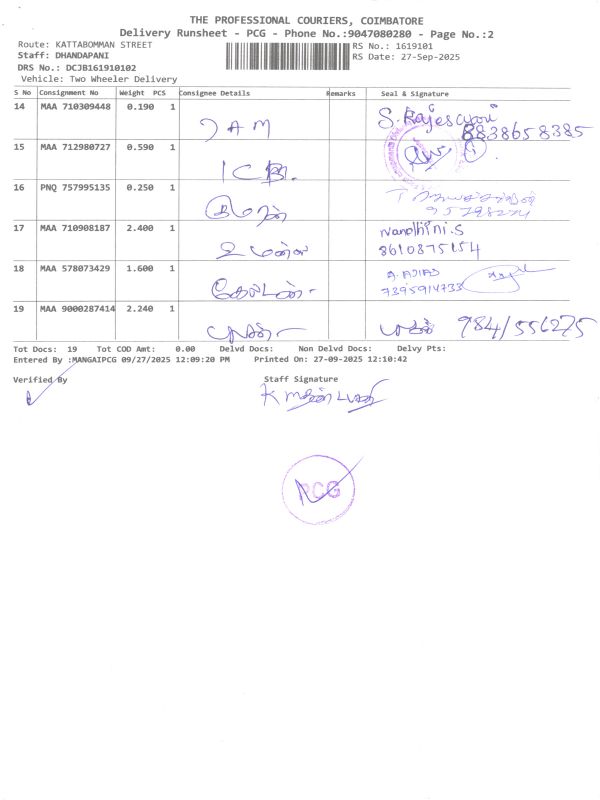 THE PROFESSIONAL COURIERS, COIMBATORE
Delivery Runsheet - PCG - Phone No.:9047080280 - Page No.:2
Route: KATTABOMMAN STREET
RS No.: 1619101
Staff: DHANDAPANI
RS Date: 27-Sep-2025
DRS No.: DCJB161910102
Vehicle: Two Wheeler Delivery
S No Consignment No Weight PCS Consignee Details Remarks Seal & Signature
14 MAA 710309448 0.190 1 JAM S. Rajeswari
8838658385
15 MAA 712980727 0.590 1
16 PNQ 757995135 0.250 1
17 MAA 710908187 2.400 1 Nandhini.S
8610875154
18 MAA 578073429 1.600 1 A. AJIAS
7395914733
19 MAA 9000287414 2.240 1 984/556275
Tot Docs: 19 Tot COD Amt: 0.00 Delvd Docs: Non Delvd Docs: Delvy Pts:
Entered By :MANGAIPCG 09/27/2025 12:09:20 PM Printed On: 27-09-2025 12:10:42
Verified By Staff Signature
PCG